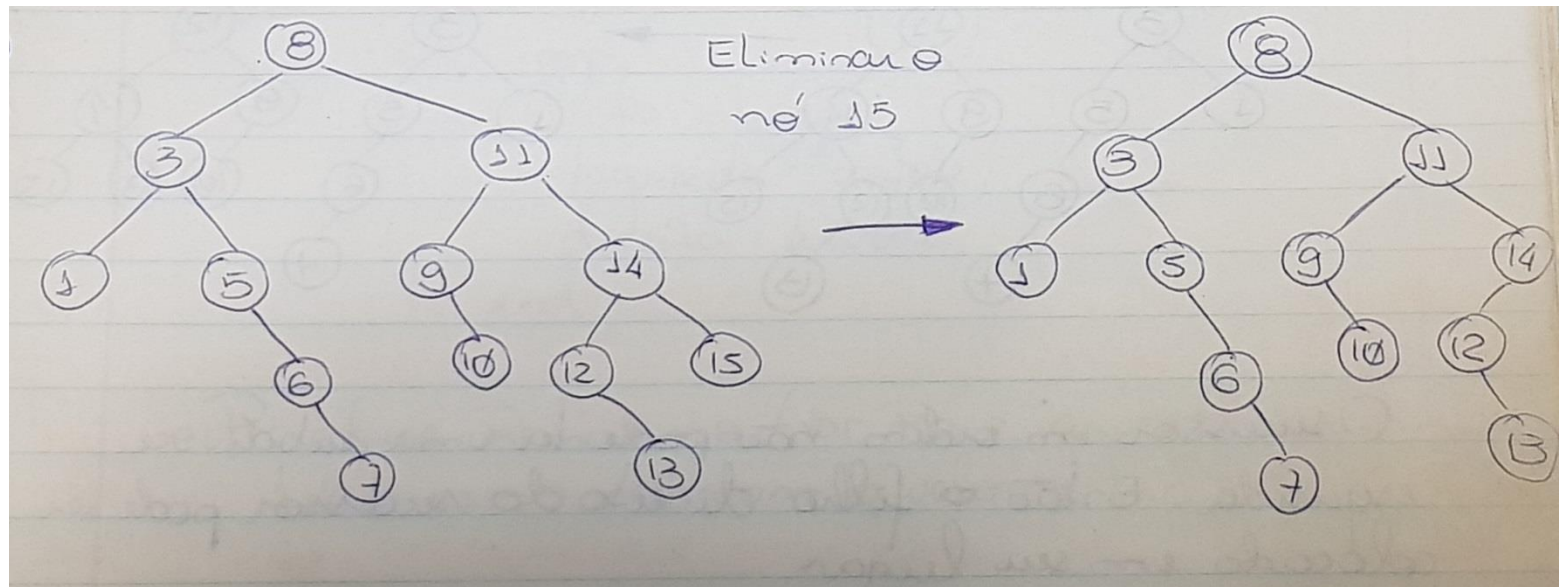 8
3 11
1 5 9 14
6 10 12 15
7 13
Eliminar o
nó 15
8
3 11
1 5 9 14
6 10 12
7 13